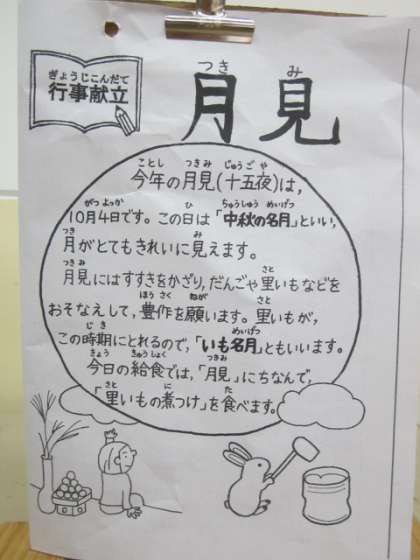 ぎょうじこんだて
行事献立
つき み
月見
ことし つきみ じゅうごや
今年の月見(十五夜)は,
がつ よっか ひ ちゅうしゅう めいげつ
10月4日です。この日は「中秋の名月」といい,
つき み
月がとてもきれいに見えます。
つきみ さと
月見にはすすきをかざり,だんごや里いもなどを
ほうさく ねが さと
おそなえして,豊作を願います。里いもが,
じき めいげつ
この時期にとれるので,「いも名月」ともいいます。
きょう きゅうしょく つきみ
今日の給食では,「月見」にちなんで,
さと に た
「里いもの煮つけ」を食べます。